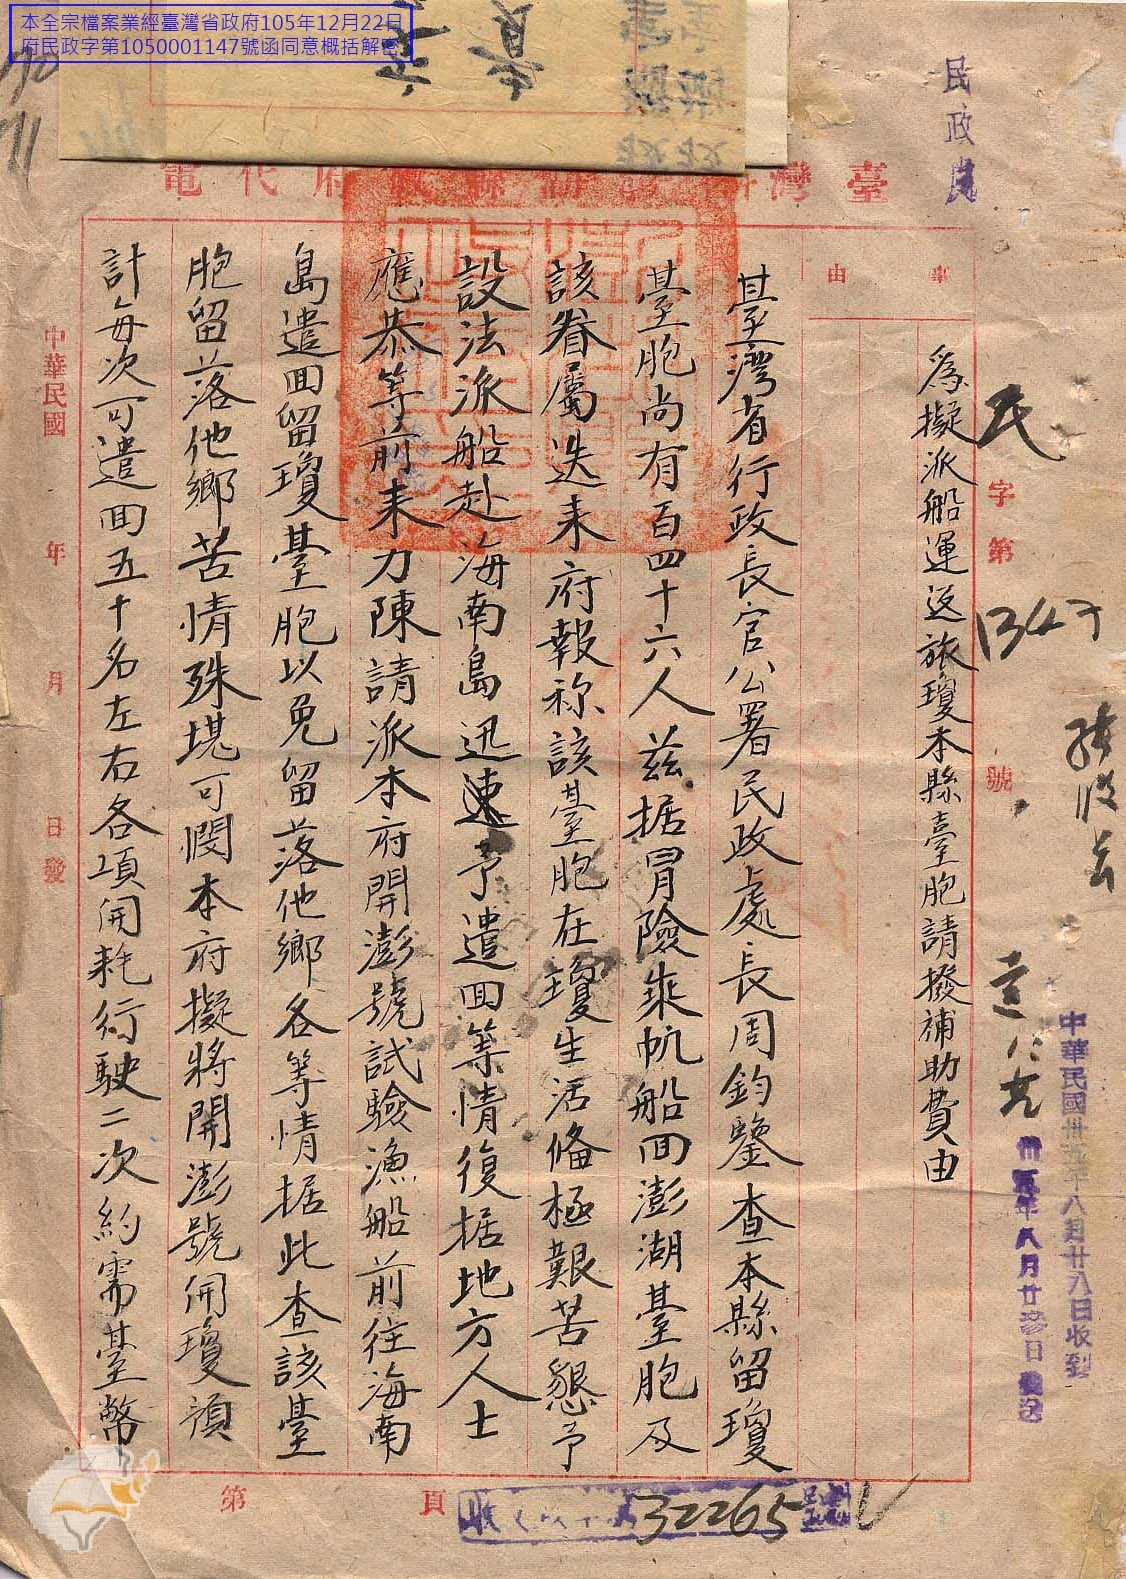 本全宗檔案業經臺灣省政府105年12月22日
府民政字第1050001147號函同意概括解密
民政
臺灣 府代電
事由
為擬派船運返旅瓊本縣臺胞請撥補助費由
民字第1347號
中華民國卅五年八月廿八日收到
卅五年八月廿 日發
臺灣省行政長官公署民政處長周鈞鑒查本縣留瓊
臺胞尚有百四十六人茲据冒險乘帆船回澎湖臺胞及
該眷屬迭來府報称該臺胞在瓊生活備極艱苦懇予
設法派船赴海南島迅速予遣回等情復据地方人士
應恭等前來力陳請派本府開澎號試驗漁船前往海南
島遣回留瓊臺胞以免留落他鄉各等情据此查該臺
胞留落他鄉苦情殊堪可憫本府擬將開澎號開瓊預
計每次可遣回五十名左右各項開耗行駛二次約需臺幣
中華民國 年 月 日發
第 頁
收 32265號